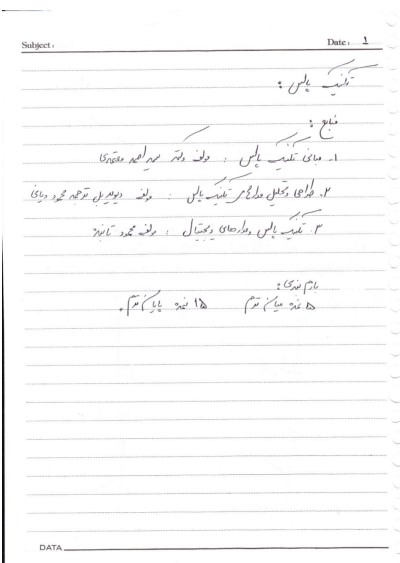 Subject:
Date: 1
تکنیک پالس :
منابع :
1. مبانی تکنیک پالس : مولف دکتر سید احمد معتمدی
2. طراحی و تحلیل مدارهای تکنیک پالس : مولف دیوید بل ترجمه محمود دیانی
3. تکنیک پالس و مدارهای دیجیتال : مولف محمود تابنده
بارم بندی :
5 نمره میان ترم 15 نمره پایان ترم .
DATA